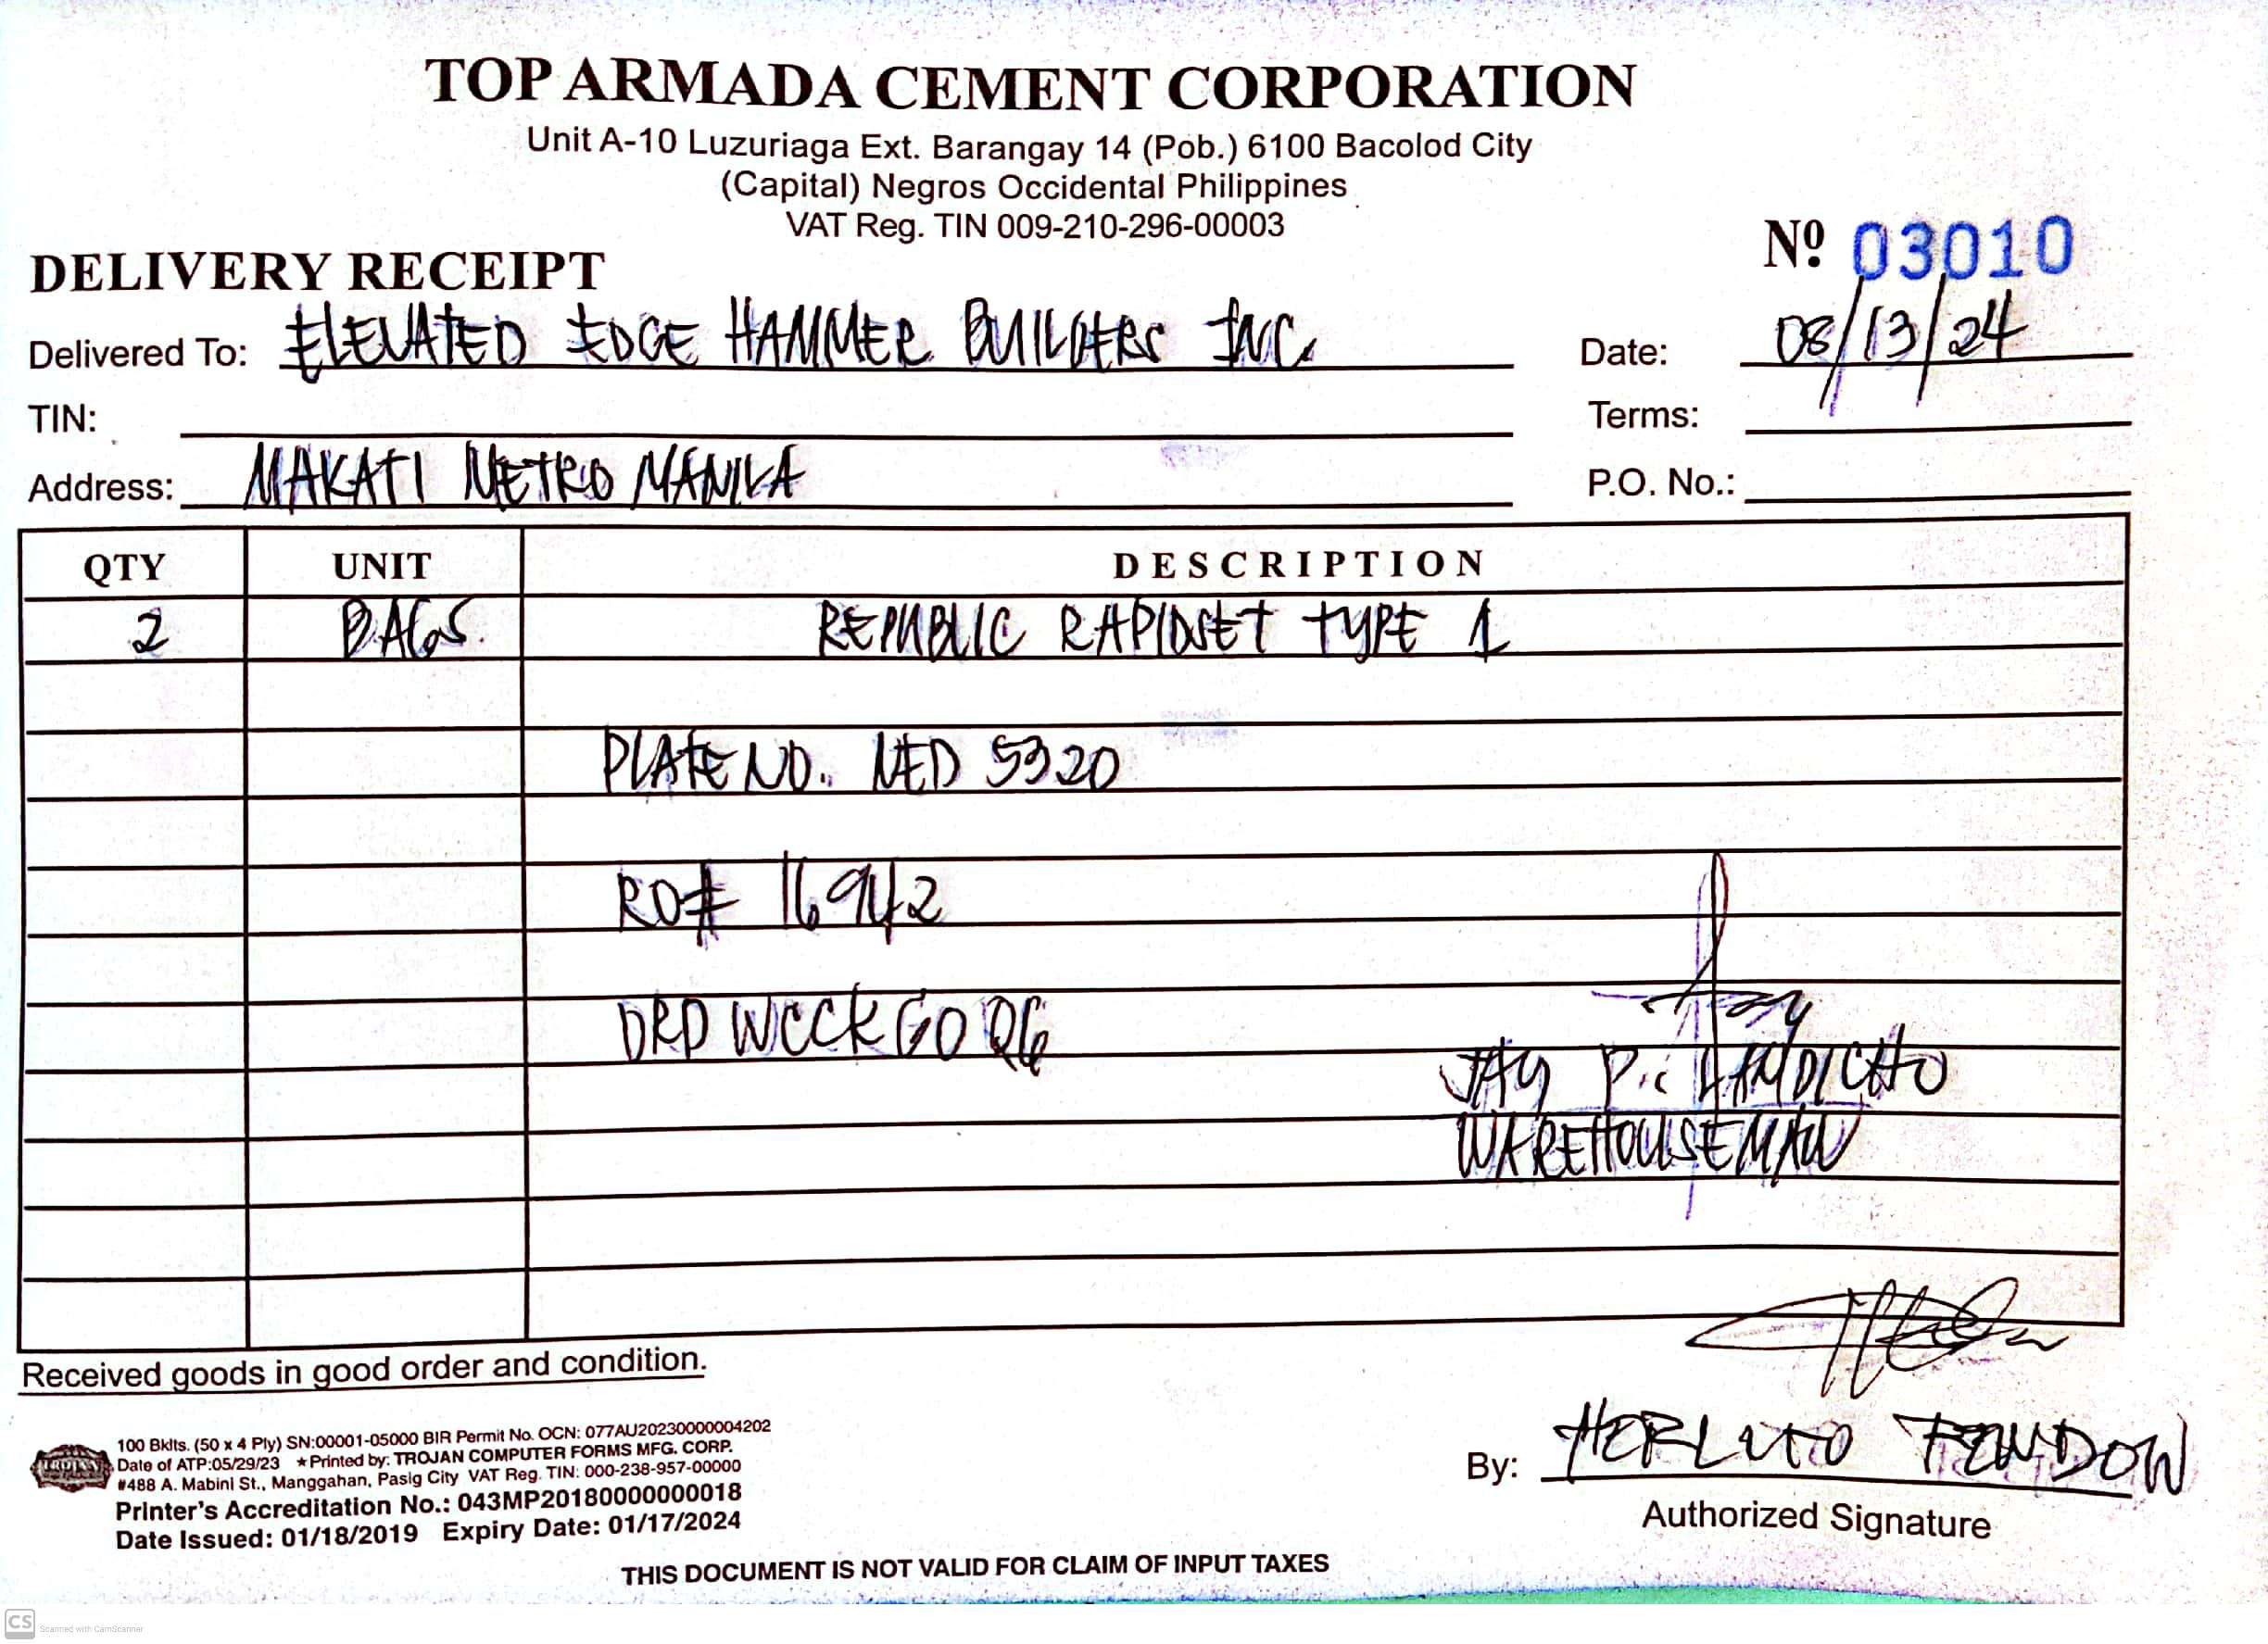 TOP ARMADA CEMENT CORPORATION
Unit A-10 Luzuriaga Ext. Barangay 14 (Pob.) 6100 Bacolod City
(Capital) Negros Occidental Philippines
VAT Reg. TIN 009-210-296-00003
DELIVERY RECEIPT
Nº 03010
Delivered To: ELEVATED EDGE HAMMER BUILDERS INC. Date: 08/13/24
TIN: Terms:
Address: MAKATI METRO MANILA P.O. No.:
QTY UNIT DESCRIPTION
2 BAGS. REPUBLIC RAPIDSET TYPE 1
PLATE NO. NED 5320
RO# 16942
DRD
JAY P. LANDICHO
WAREHOUSEMAN
Received goods in good order and condition.
100 Bklts. (50 x 4 Ply) SN:00001-05000 BIR Permit No. OCN: 077AU20230000004202
Date of ATP:05/29/23 ★Printed by: TROJAN COMPUTER FORMS MFG. CORP.
#488 A. Mabini St., Manggahan, Pasig City VAT Reg. TIN: 000-238-957-00000
Printer's Accreditation No.: 043MP20180000000018
Date Issued: 01/18/2019 Expiry Date: 01/17/2024
TROJAN
By: HERLITO
Authorized Signature
THIS DOCUMENT IS NOT VALID FOR CLAIM OF INPUT TAXES
CS Scanned with CamScanner